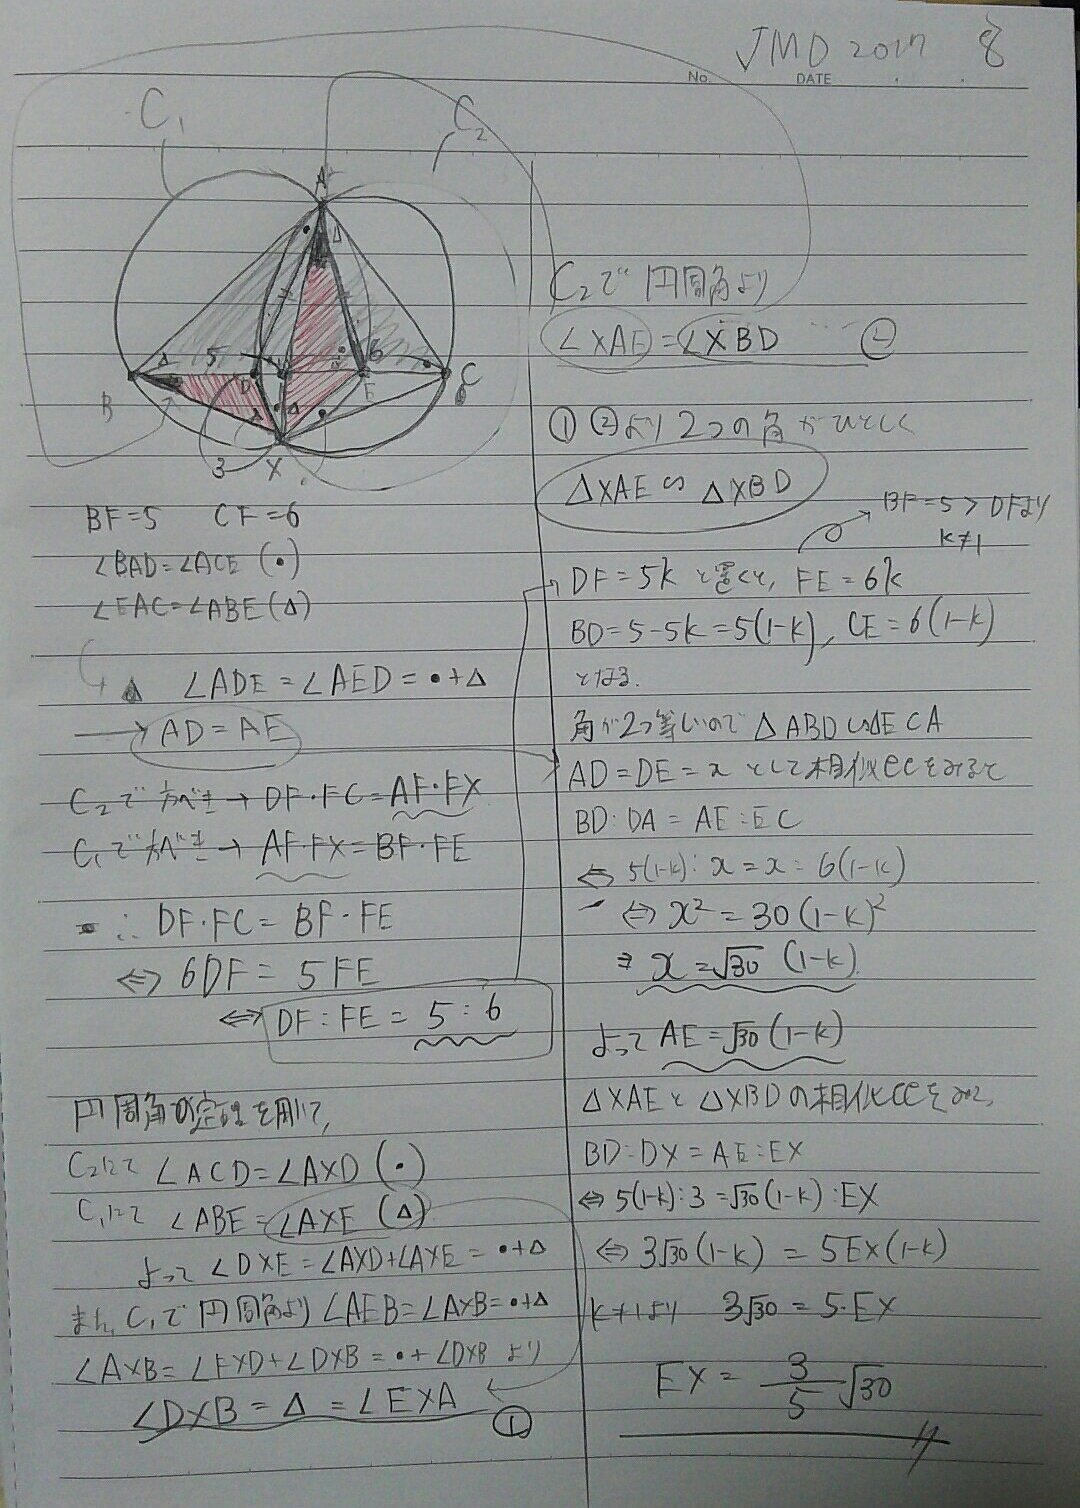 JMO 2017 8
No.
DATE
C₁
C₂
A
B
C
D
E
F
X
5
6
3
BF=5 CF=6
∠BAD=∠ACE (•)
∠EAC=∠ABE(△)
∠ADE=∠AED=•+△
→AD=AE
C₂で方べき→DF・FC=AF・FX
C₁で方べき→AF・FX=BF・FE
∴DF・FC=BF・FE
⇔6DF=5FE
⇔DF:FE=5:6
円周角の定理を用いて,
C₂にて∠ACD=∠AXD(•)
C₁にて∠ABE=∠AXE(△)
よって∠DXE=∠AXD+∠AXE=•+△
また,C₁で円周角より∠AEB=∠AXB=•+△
∠AXB=∠FXD+∠DXB=•+∠DXBより
∠DXB=△=∠EXA ①
C₂で円周角より
∠XAE=∠XBD ②
①②より2つの角がひとしく
△XAE∽△XBD
BF=5>DFより
k≠1
DF=5kと置くと,FE=6k
BD=5-5k=5(1-k),CE=6(1-k)
となる.
角が2つ等しいので△ABD∽△ECA
AD=DE=xとして相似比をみると
BD:DA=AE:EC
⇔5(1-k):x=x:6(1-k)
⇔x²=30(1-k)²
x=√30(1-k)
よってAE=√30(1-k)
△XAEと△XBDの相似比をみて,
BD:DX=AE:EX
⇔5(1-k):3=√30(1-k):EX
⇔3√30(1-k)=5EX(1-k)
k≠1より 3√30=5・EX
EX=3/5√30